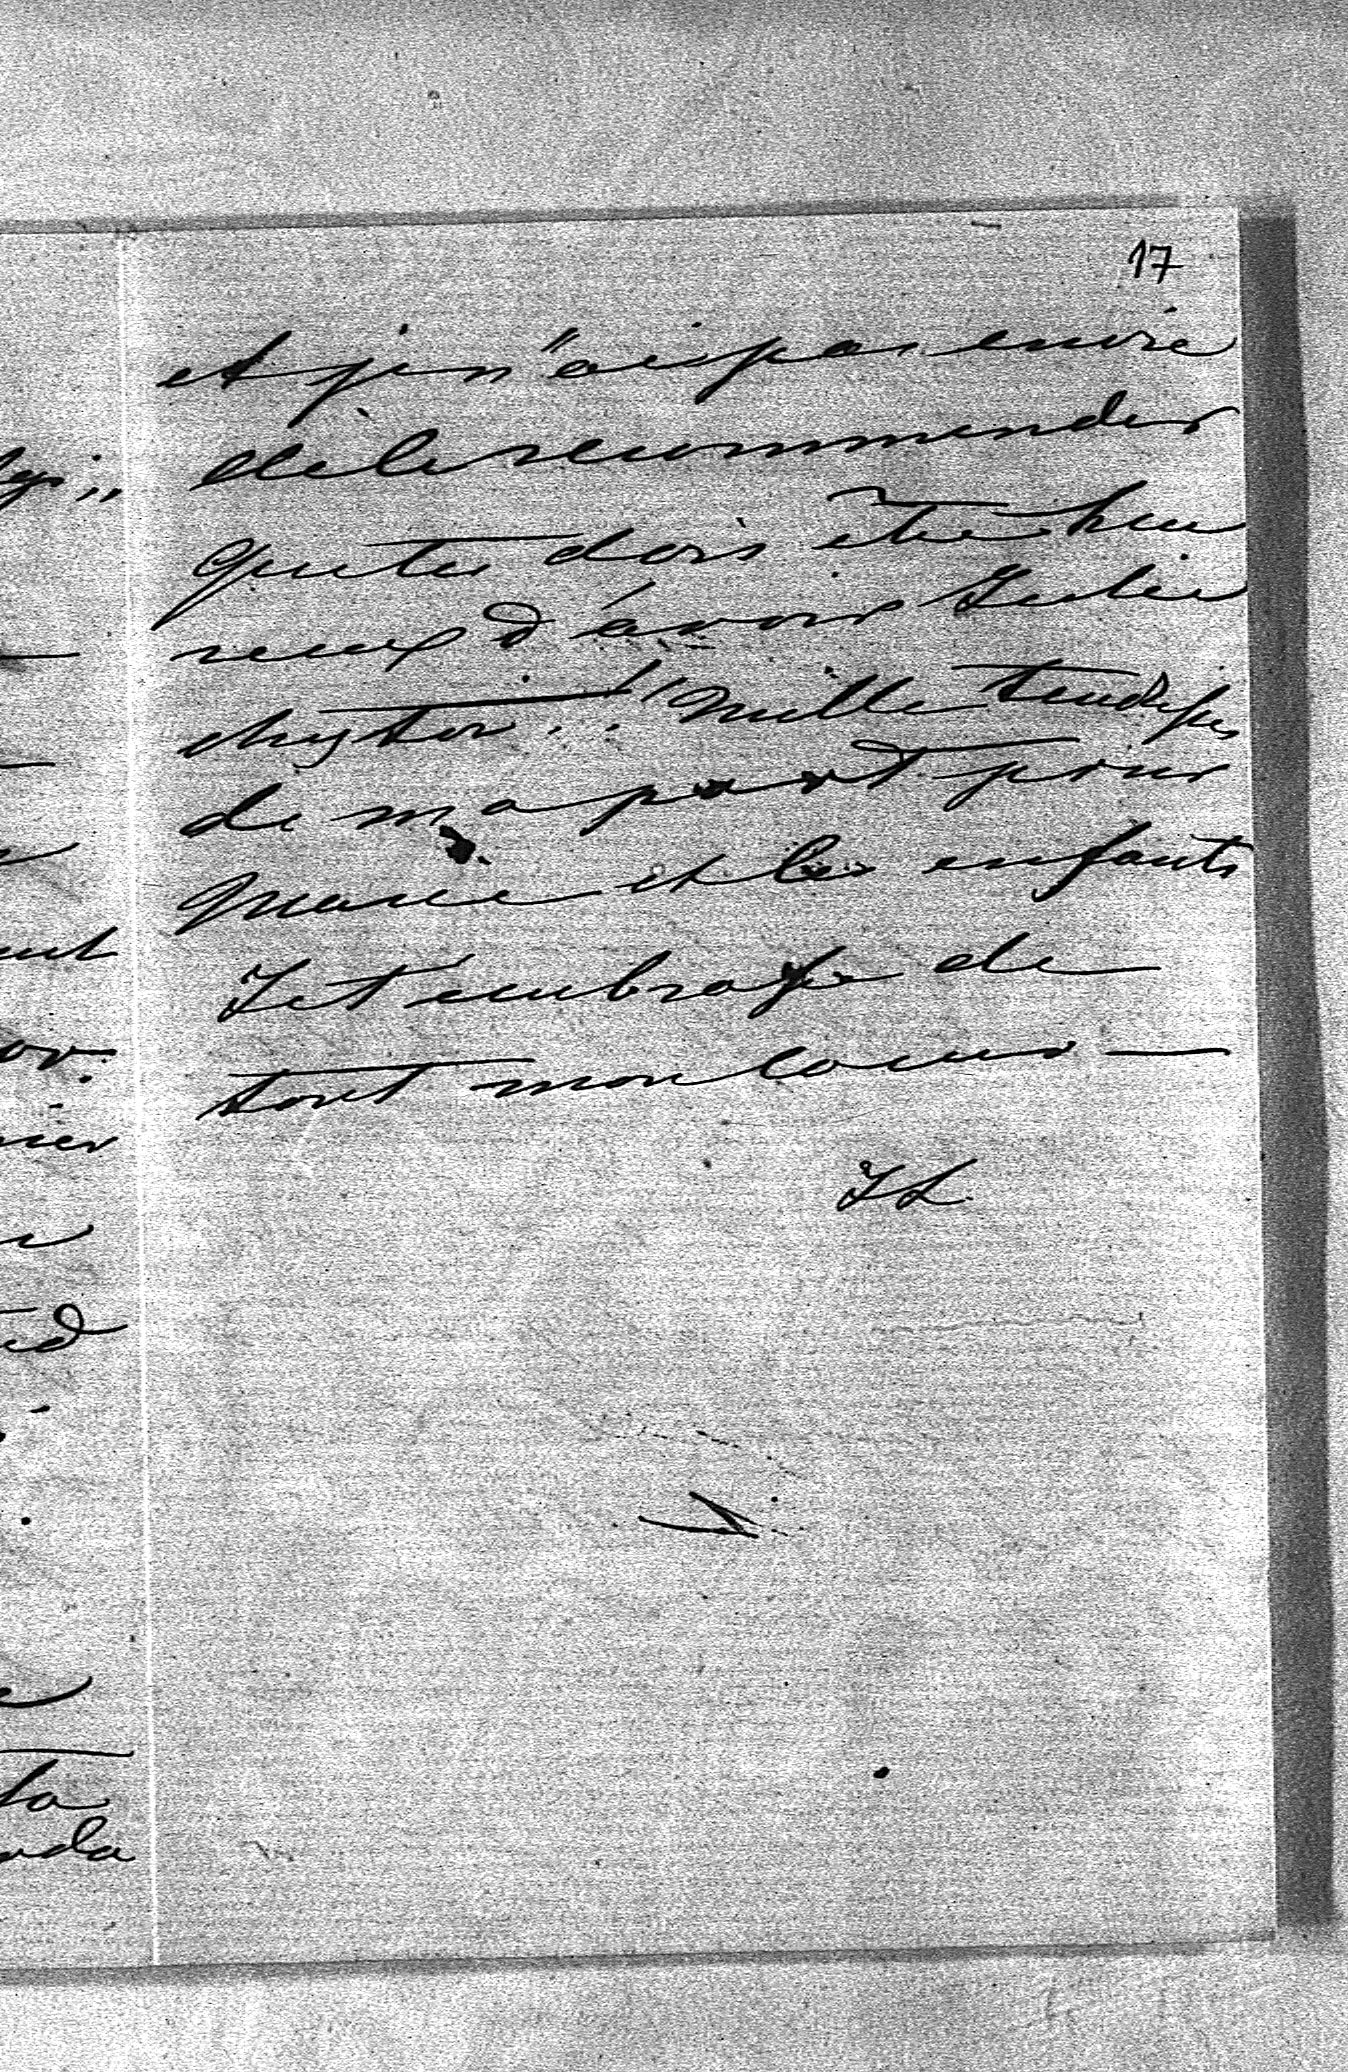 17
et je n'ai pas envie
de le recommender
que tu dois être heu
reux d'avoir Julie
chez toi!! Mille tendresses
de ma part pour
Marie et les enfants
Je t'embrasse de
tout mon coeur —
JL